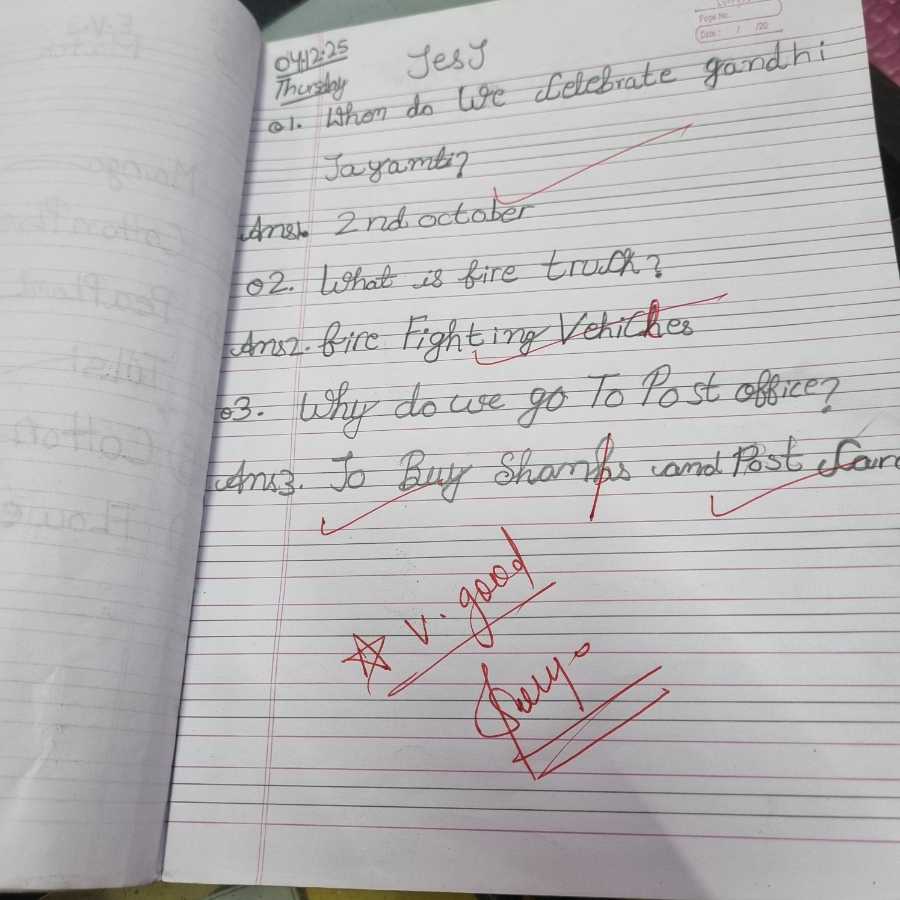 Page No.
Date: / /20
04.12.25
Thursday
Test
Q1. When do We Celebrate gandhi
Jayanti?
Ans1. 2nd october
Q2. What is fire truck?
Ans2. fire Fighting Vehicles
Q3. Why do we go To Post office?
Ans3. To Buy Shamps and Post Card
V. good